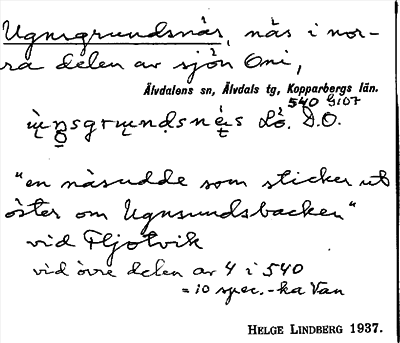 Ugnsgrundsnäs, näs i nor-
ra delen av sjön Oni,
Älvdalens sn, Älvdals tg, Kopparbergs län.
540 G107
Lö. D.O.
"en näsudde som sticker ut
öster om Ugnsundsbacken"
vid Fljotvik
vid övre delen av 4 i 540
= 10 spec.-ka Van
HELGE LINDBERG 1937.